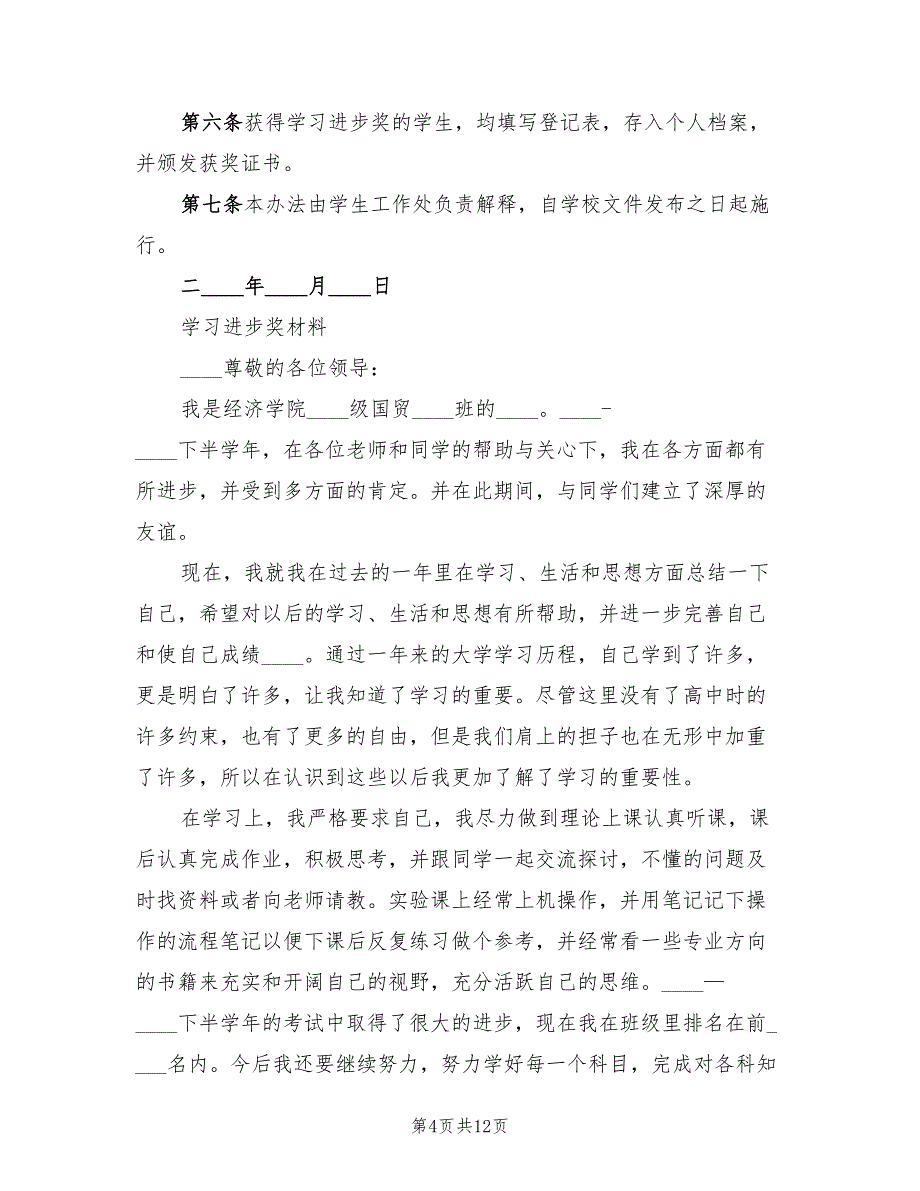 第六条获得学习进步奖的学生，均填写登记表，存入个人档案，
并颁发获奖证书。
第七条本办法由学生工作处负责解释，自学校文件发布之日起施
行。
二____年____月____日
学习进步奖材料
____尊敬的各位领导：
我是经济学院____级国贸____班的____。____-
____下半学年，在各位老师和同学的帮助与关心下，我在各方面都有
所进步，并受到多方面的肯定。并在此期间，与同学们建立了深厚的
友谊。
现在，我就我在过去的一年里在学习、生活和思想方面总结一下
自己，希望对以后的学习、生活和思想有所帮助，并进一步完善自己
和使自己成绩____。通过一年来的大学学习历程，自己学到了许多，
更是明白了许多，让我知道了学习的重要。尽管这里没有了高中时的
许多约束，也有了更多的自由，但是我们肩上的担子也在无形中加重
了许多，所以在认识到这些以后我更加了解了学习的重要性。
在学习上，我严格要求自己，我尽力做到理论上课认真听课，课
后认真完成作业，积极思考，并跟同学一起交流探讨，不懂的问题及
时找资料或者向老师请教。实验课上经常上机操作，并用笔记记下操
作的流程笔记以便下课后反复练习做个参考，并经常看一些专业方向
的书籍来充实和开阔自己的视野，充分活跃自己的思维。____—
____下半学年的考试中取得了很大的进步，现在我在班级里排名在前_
___名内。今后我还要继续努力，努力学好每一个科目，完成对各科知
第4页共12页